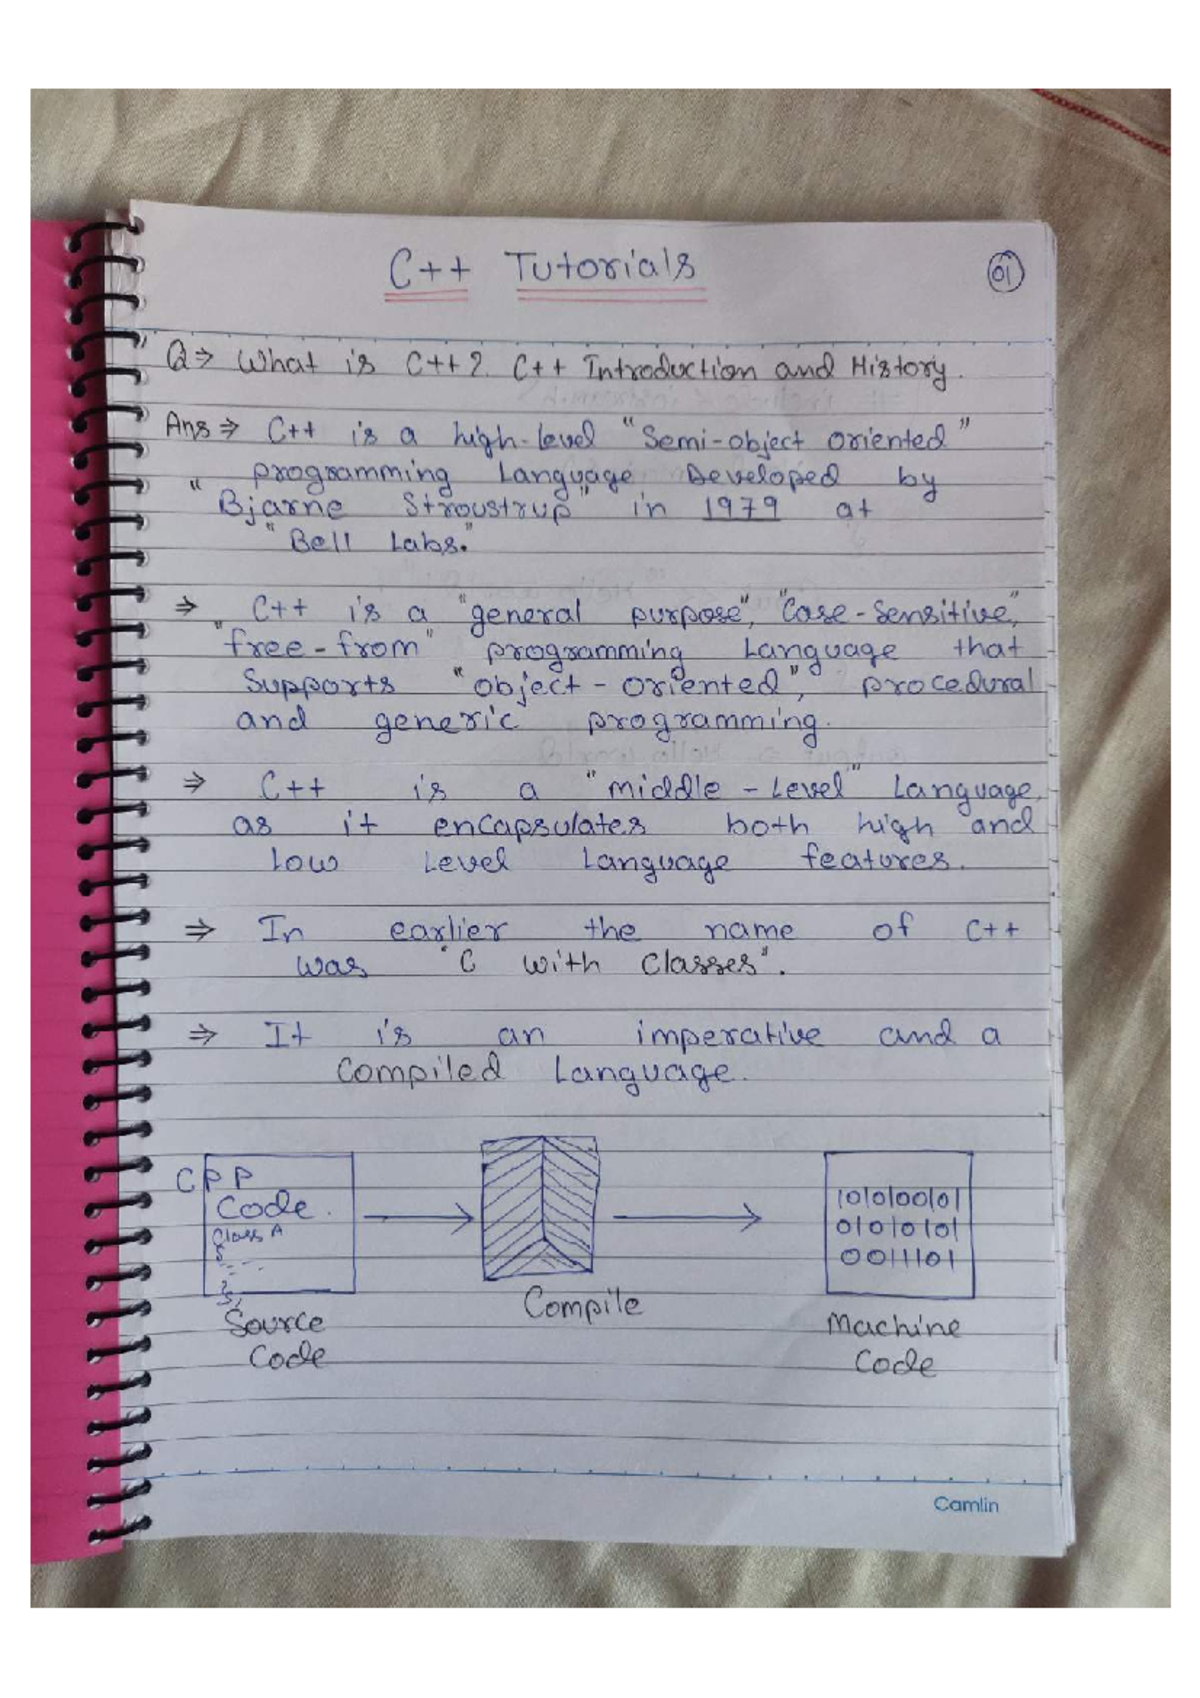 C++ Tutorials
01
Q⇒ What is C++? C++ Introduction and History.
Ans⇒ C++ is a high-level "Semi-object oriented"
programming Language Developed by
"Bjarne Stroustrup" in 1979 at
"Bell Labs."
⇒ C++ is a "general purpose", "Case-Sensitive",
"free-from" programming Language that
Supports "object-oriented", procedural
and generic programming.
⇒ C++ is a "middle-Level" Language,
as it encapsulates both high and
Low Level Language features.
⇒ In earlier the name of C++
was "C with Classes".
⇒ It is an imperative and a
Compiled Language.
CPP
Code.
Class A
Source
Code
Compile
1010100101
01010101
0011101
Machine
Code
Camlin